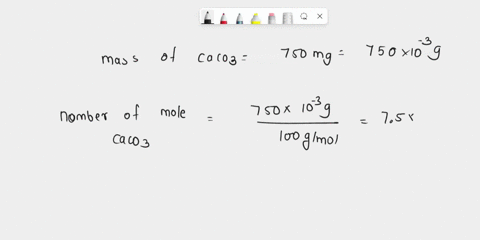 mass of caco3 = 750 mg = 750 × 10⁻³ g
nomber of mole caco3 = 750 × 10⁻³ g / 100 g/mol = 7.5 ×